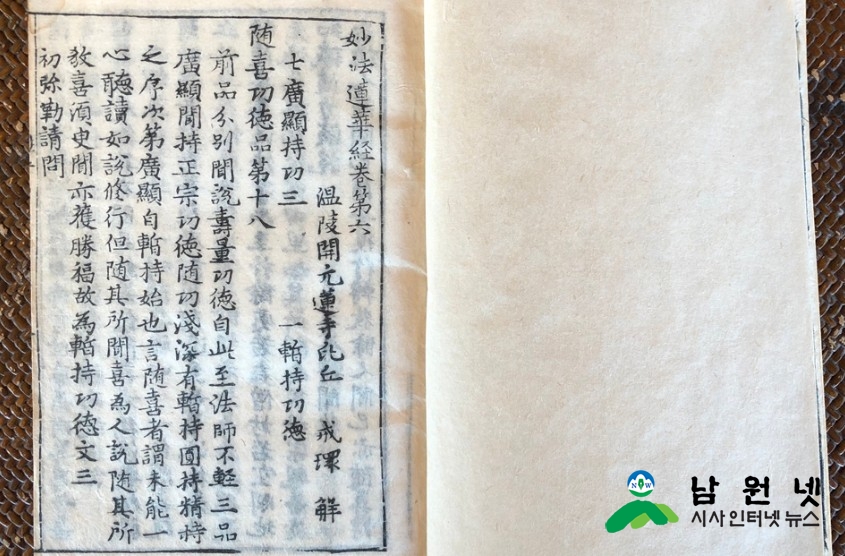 妙法蓮華経巻第六
温陵開元蓮寺比丘 戒環 解
七廣顯持功三 一暫持功德
随喜功徳品第十八
前品分别聞說壽量功徳自此至法師不軽三品
廣顯聞持正宗功徳随功淺深有暫持圓持精持
之序次第廣顯自暫持始也言随喜者謂未能一
心聽讀如說修行但随其所聞喜為人說随其所
教喜須史聞亦獲勝福故為暫持功徳文三
初弥勒請問
NW
남원넷
시사인터넷뉴스